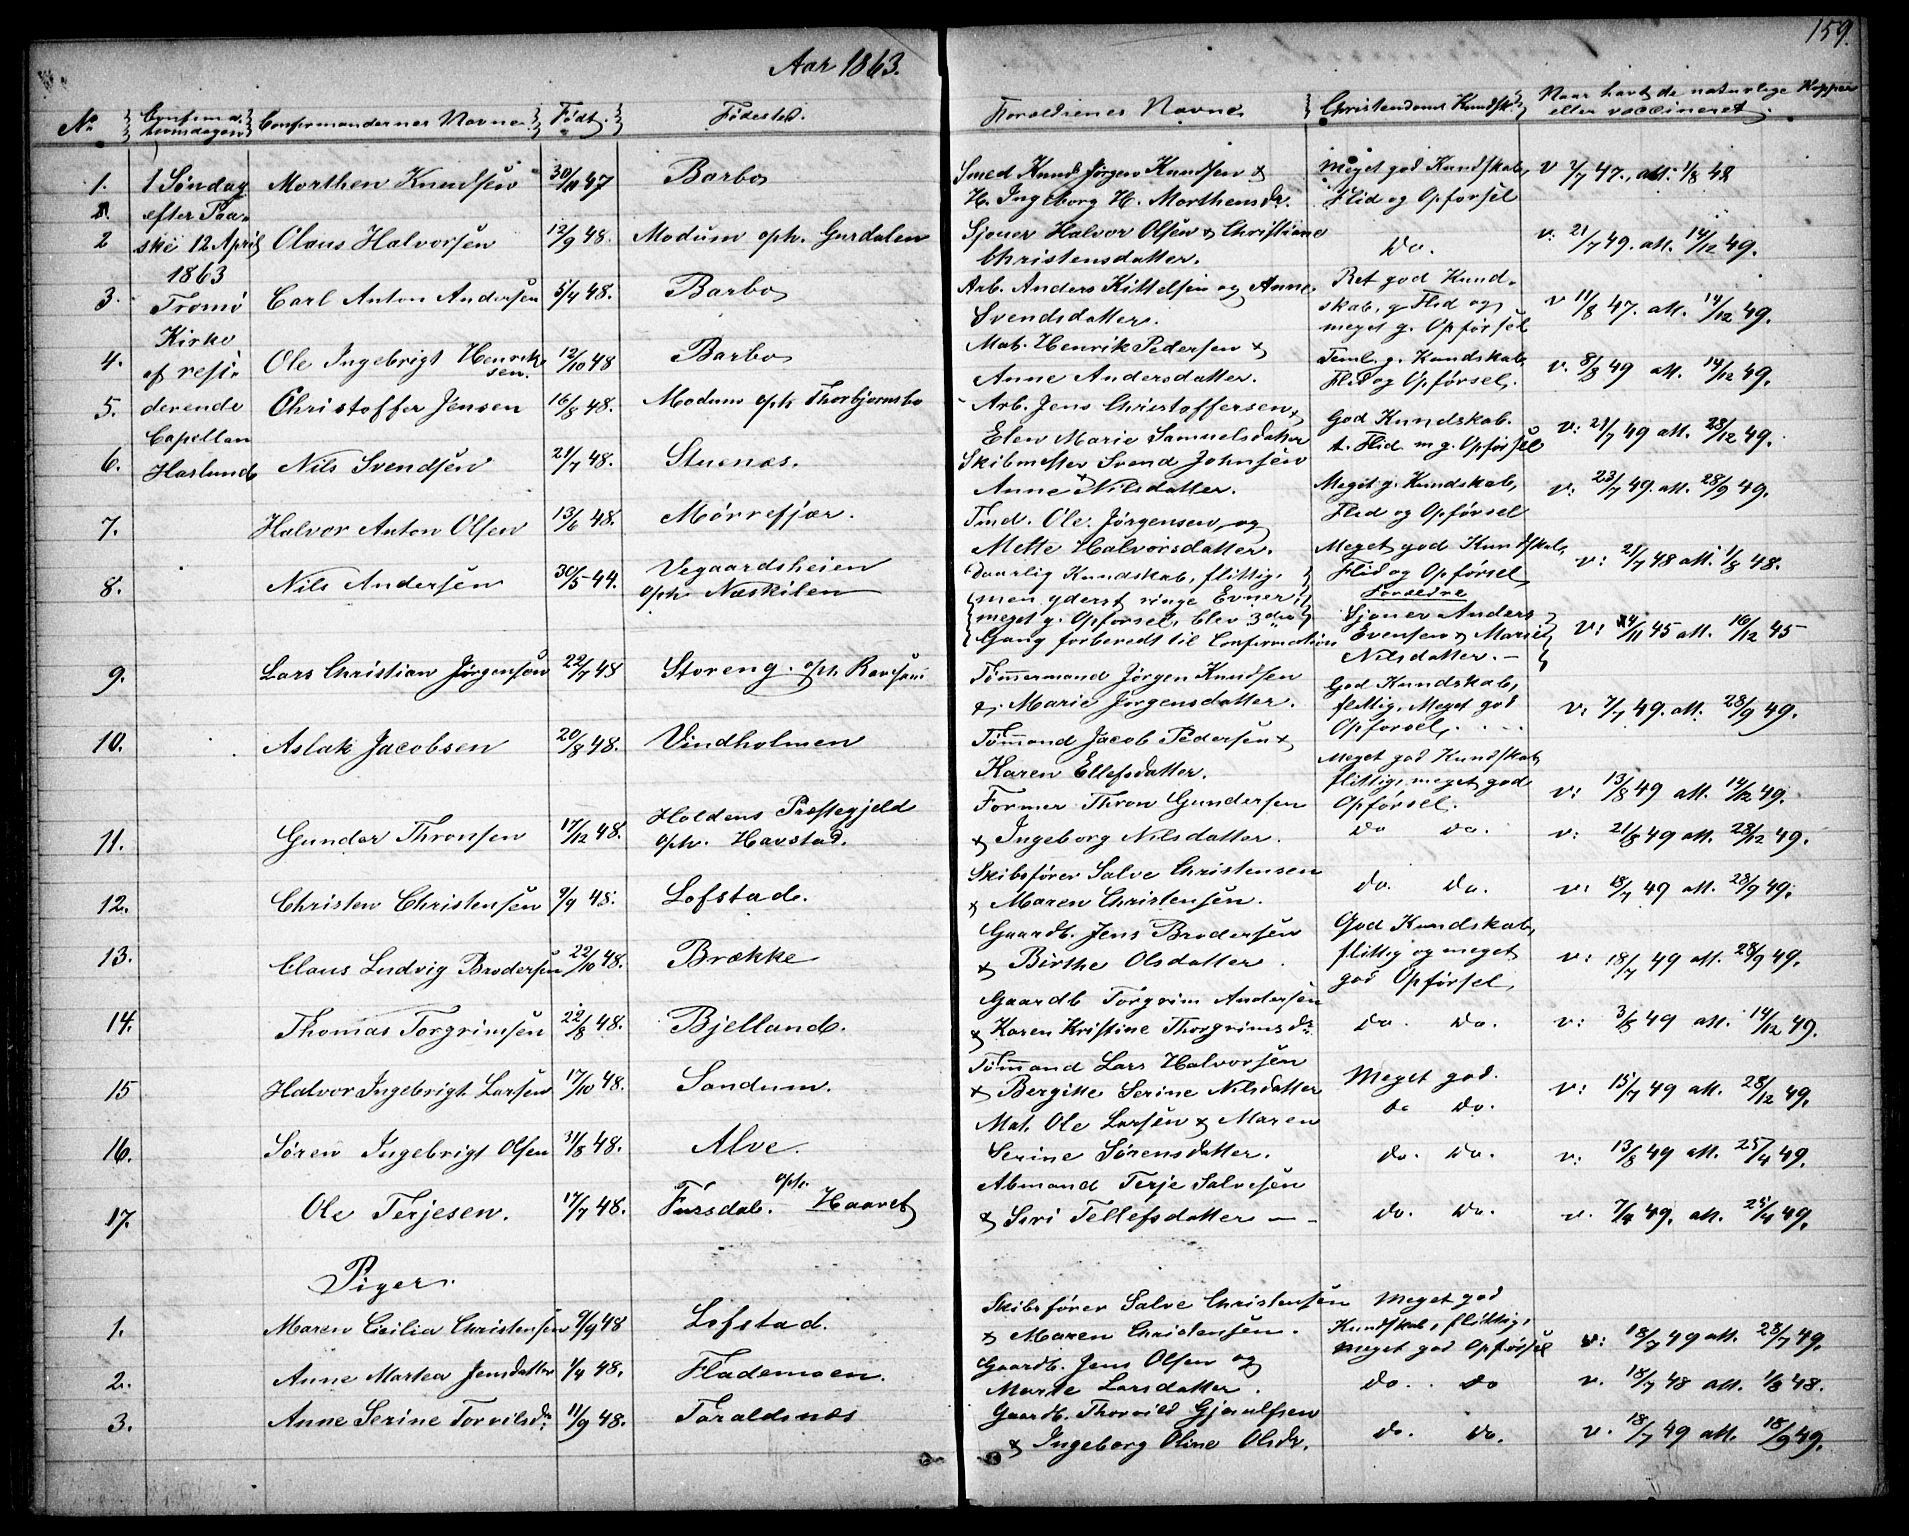 159.
Aar 1863.
No Confirmationsdagen Confirmandernes Navne. Født. Fødested. Forældrenes Navne Christendoms Kundsk. Naar havt de naturlige Kopper eller vaccineret.
1 Søndag efter Paaske 12 April 1863 Tromø Kirke af residerende Capellan Haslund
1. Morthen Knudsen 30/10 47 Barbo Smed Knud Jørgen Knudsen & H. Ingeborg H. Morthensdr. Meget god Kundskab, Flid og Opførsel V 7/7 47. att. 1/8 48
2 Claus Halvorsen 12/9 48. Modum oph. Gurdalen Sjouer Halvor Olsen & Christiane Christensdatter. Do. v: 21/7 49. att. 14/12 49.
3. Carl Anton Andersen 5/4 48. Barbo Arb. Anders Kittelsen og Anne Svendsdatter. Ret god Kundskab, g Flid og meget g. Opførsel v 11/8 47. att. 14/12 49.
4. Ole Ingebrigt Henriksen. 12/10 48 Barbo Mat. Henrik Pedersen & Anne Andersdatter. Teml. g. Kundskab, Flid og Opførsel. v. 8/8 49 att. 14/12 49.
5. Christoffer Jensen 16/8 48. Modum oph Thorbjørnsbo Arb. Jens Christoffersen & Elen Marie Samuelsdatter God Kundskab. t. Flid m g. Opførsel v: 21/7 49 att. 28/12 49.
6. Nils Svendsen 21/7 48. Stuenes. Skibmester Svend Johnsen & Anne Nilsdatter. Meget g. Kundskab, Flid og Opførsel v: 23/7 49. att. 28/9 49.
7. Halvor Anton Olsen 13/6 48. Mørrefjær. Tmd. Ole Jørgensen og Mette Halvorsdatter. Meget god Kundskab, Flid og Opførsel v: 21/7 48 att. 1/8 48.
8. Nils Andersen 30/5 44. Vegaardsheien oph. Næskilen daarlig Kundskab, flittig, men yderst ringe Evner, meget g. Opførsel, blev 3die Gang forberedt til Confirmation Forældre Sjouer Anders Evensen & Marie Nilsdatter. v: 24/11 45 att. 16/12 45
9. Lars Christian Jørgensen 22/7 48 Storeng. oph. Revesand Tømmermand Jørgen Knudsen & Marie Jørgensdatter. God Kundskab, flittig, Meget god Opførsel. v: 7/7 49. att. 28/9 49.
10. Aslak Jacobsen 20/8 48. Vindholmen Tømmand Jacob Pedersen & Karen Ellefsdatter. Meget god Kundskab flittig, meget god Opførsel. v: 13/8 49 att. 14/12 49.
11. Gunder Thronsen 17/12 48. Holdens Præstegjeld oph. Havstad. Former Thron Gundersen & Ingeborg Nilsdatter. do do. v: 21/8 49 att. 28/12 49.
12. Christen Christensen 9/9 48. Lofstad. Skibsfører Salve Christensen & Maren Christensen. do. do. v: 18/7 49 att. 28/9 49.
13. Claus Ludvig Brodersen 22/10 48. Brække Gaardb. Jens Brodersen & Birthe Olsdatter. God Kundskab, flittig og meget god Opførsel, v: 18/7 49 att. 28/9 49.
14. Thomas Torgrimsen 22/8 48. Bjelland. Gaardb Torgrim Andersen & Karen Kristine Thorgrimsdr. do. do. v: 3/8 49 att. 14/12 49.
15 Halvor Ingebrigt Larsen 17/10 48. Sandum. Tømmand Lars Halvorsen & Bergitte Serine Nilsdatter Meget god. do do. v: 15/7 49 att. 28/12 49.
16. Søren Ingebrigt Olsen 31/8 48. Alve. Mat. Ole Larsen & Maren Serine Sørensdatter. do. do. v: 13/8 49 att. 25/4 49.
17. Ole Terjesen. 17/7 48. Fursdal. oph. Haavet Abmand Terje Salvesen & Siri Tellefsdatter do. do. v. 7/4 49. att. 25/4 49.
Piger.
1. Maren Cicilia Christensen 9/9 48 Lofstad. Skibsfører Salve Christensen & Maren Christensen. Meget god Kundskab, flittig, meget god Opførsel v: 18/7 49 att. 28/7 49.
2. Anne Martea Jensdatter 1/4 48. Flademoen. Gaardb. Jens Olsen og Marte Larsdatter. do. do v. 18/7 48 att. 1/8 48.
3. Anne Serine Torvilsdr. 11/9 48. Taraldsnæs Gaardb. Thorvild Gjeruldsen & Ingeborg Oline Olsdr. do. do. v. 18/7 49 att. 18/9 49.